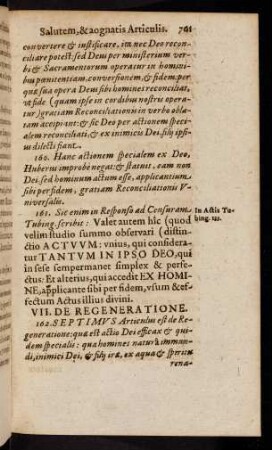 Salutem, & aognatis Articulis. 761
convertere & iustificare, imo nec Deo recon-
ciliare potest: sed Deus per ministerium ver-
bi & Sacramentorum operatur in homini-
bus pœnitentiam, conversionem, & fidem, per
quæ sua opera Deus sibi homines reconciliat,
ut fide (quam ipse in cordibus nostris opera-
tur) gratiam Reconciliationis in verbo obla-
tam accipiant: & sic Deo per actionem speci-
alem reconciliati, & ex inimicis Dei, filij ipsi-
us dilecti fiant.
160. Hanc actionem specialem ex Deo,
Huberus improbè negat: & statuit, eam non
Dei, sed hominum actum esse, applicantium
sibi per fidem, gratiam Reconciliationis V-
niversalis.
161. Sic enim in Responso ad Censuram
Tubing. scribit: Valet autem hîc (quod
velim studio summo observari) distin-
ctio ACTVVM: vnius, qui considera-
tur TANTVM IN IPSO DEO, qui
in sese semper manet simplex & perfe-
ctus: Et alterius, qui accedit EX HOMI-
NE, applicante sibi per fidem, vsum & ef-
fectum Actus illius divini.
In Actis Tu-
bing. 121.
VII. DE REGENERATIONE.
162. SEPTIMVS Articulus est de Re-
generatione: quæ est actio Dei efficax & qui-
dem specialis: qua homines naturâ immun-
di, inimici Dei, & filij iræ, ex aqua & spiritu
rena-